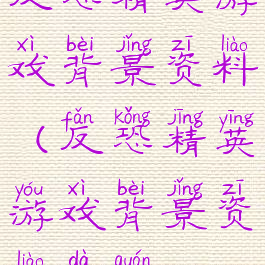 反恐精英游
xì bèi jǐng zī liào
戏背景资料
fǎn kǒng jīng yīng
（反恐精英
yóu xì bèi jǐng zī
游戏背景资
liào dà quán